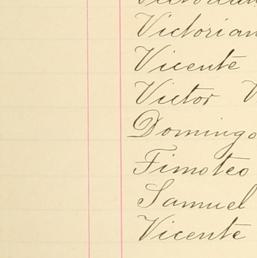 Victorian
Vicente
Victor V
Domingo
Timoteo
Samuel
Vicente